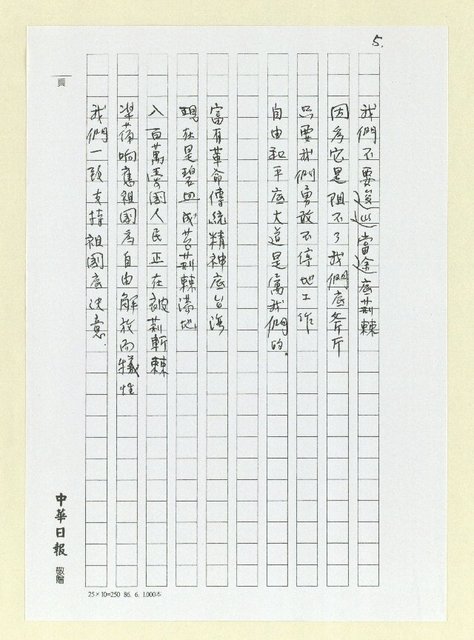 5.
我們不要逡巡當途底荊棘
因為它是阻不了我們底斧斤
只要我們勇敢不停地工作
自由和平底大道是屬我們的.
富有革命傳統精神底台灣
現在是碧血成苔荊棘滿地
八百萬愛國人民正在被荊斬棘
響應祖國為自由解放而犧牲
我們一致支持祖國底決意.
頁
中華日報
敬贈
25×10=250 86. 6. 1,000本